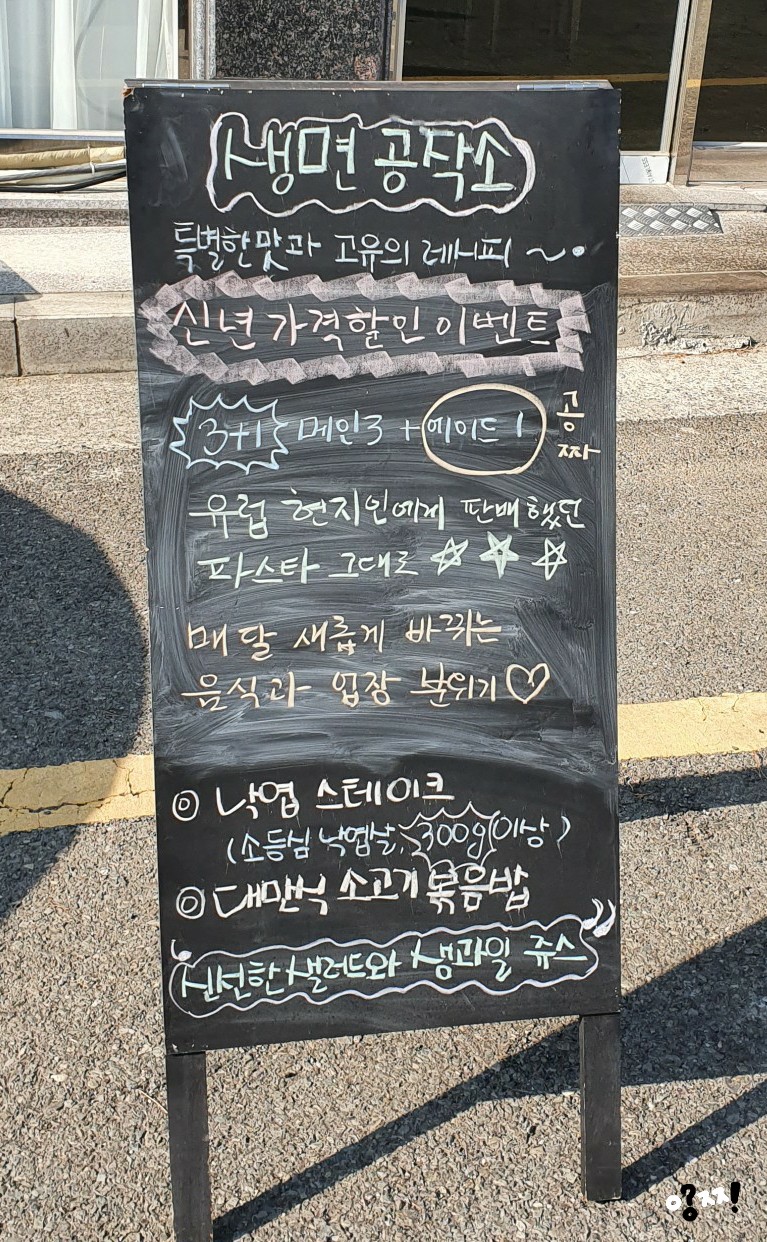 생면 공작소
특별한 맛과 고유의 레시피 ~
신년 가격할인 이벤트
3+1 메인3 + 에이드 1 공짜
유럽 현지인에게 판매했던
파스타 그대로 ☆ ☆ ☆
매달 새롭게 바뀌는
음식과 업장 분위기♡
◎ 낙엽 스테이크
(소등심 낙엽살, 300g 이상)
◎ 대만식 소고기 볶음밥
신선한 샐러드와 생과일 쥬스